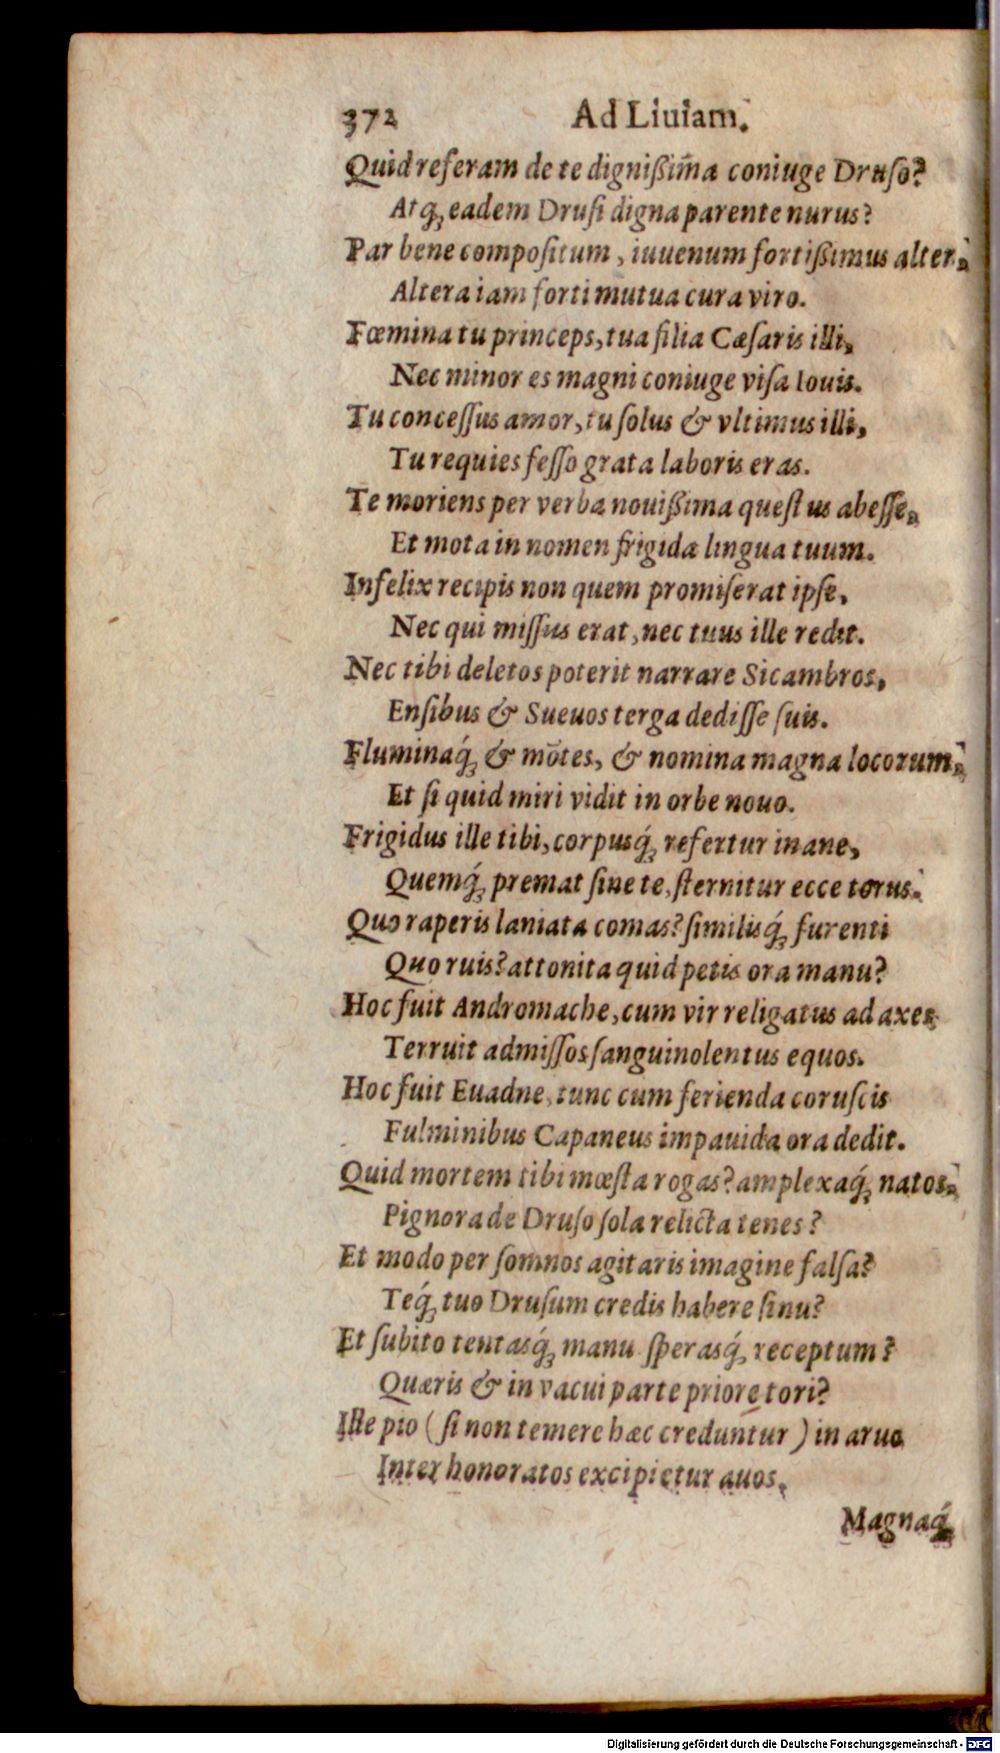 372 Ad Liuiam.
Quid referam de te dignißim̃a coniuge Druso?
Atq́; eadem Drusi digna parente nurus?
Par bene compositum, iuuenum fortißimus alter,
Altera iam forti mutua cura viro.
Fœmina tu princeps, tua filia Cæsaris illi,
Nec minor es magni coniuge visa Iouis.
Tu concessus amor, tu solus & vltimus illi,
Tu requies fesso grata laboris eras.
Te moriens per verba nouißima questus abesse,
Et mota in nomen frigida lingua tuum.
Infelix recipis non quem promiserat ipse,
Nec qui missus erat, nec tuus ille redit.
Nec tibi deletos poterit narrare Sicambros,
Ensibus & Sueuos terga dedisse suis.
Fluminaq́; & mōtes, & nomina magna locorum,
Et si quid miri vidit in orbe nouo.
Frigidus ille tibi, corpusq́; refertur inane,
Quemq́; premat sine te, sternitur ecce torus.
Quo raperis laniata comas? similisq́; furenti
Quo ruis? attonita quid petis ora manu?
Hoc fuit Andromache, cum vir religatus ad axes
Terruit admissos sanguinolentus equos.
Hoc fuit Euadne, tunc cum ferienda coruscis
Fulminibus Capaneus impauida ora dedit.
Quid mortem tibi mœsta rogas? amplexaq́; natos,
Pignora de Druso sola relicta tenes?
Et modo per somnos agitaris imagine falsa?
Teq́; tuo Drusum credis habere sinu?
Et subito tentasq́; manu sperasq́; receptum?
Quæris & in vacui parte priore tori?
Ille pio (si non temere hæc creduntur) in aruo
Inter honoratos excipietur auos,
Magnaq́;
Digitalisierung gefördert durch die Deutsche Forschungsgemeinschaft - DFG